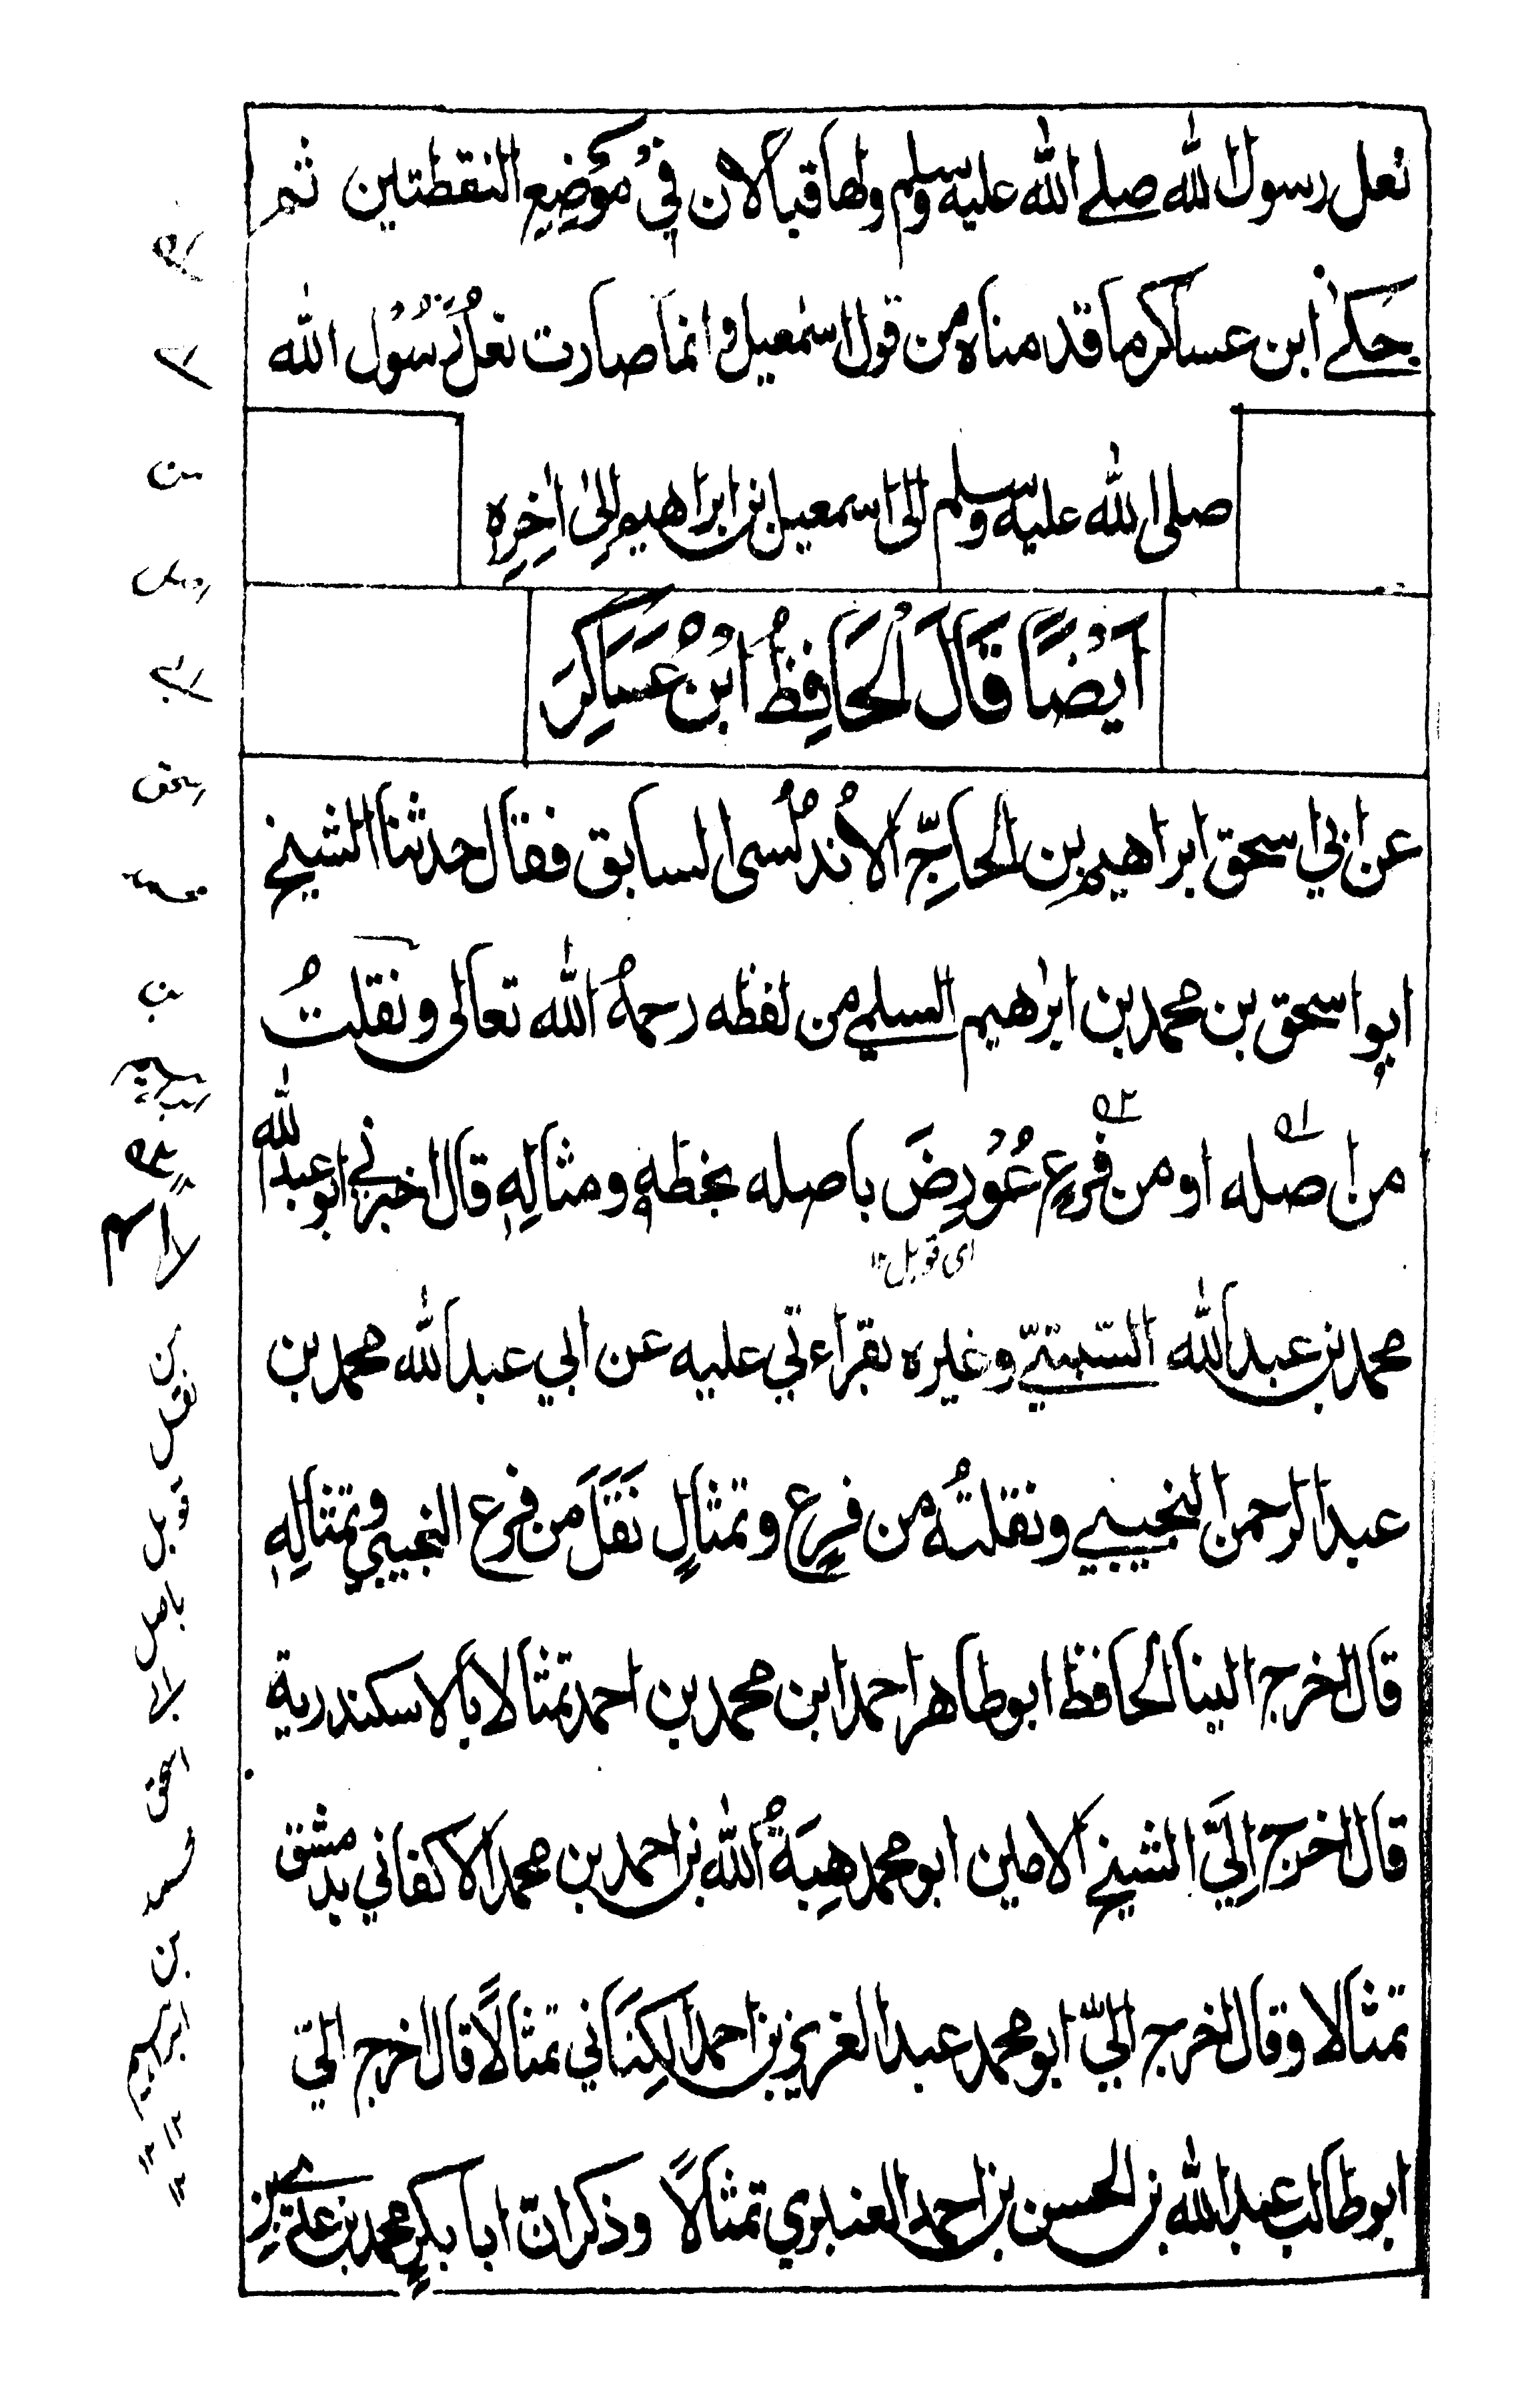 نعل رسول الله صلى الله عليه وسلم ولها قبالان في موضع النقطتين ثم
حكى ابن عساكر ما قدمناه من قول اسمعيل وانما صارت نعل رسول الله
صلى الله عليه وسلم الى اسمعيل بن ابراهيم الى اخره
اَيْضًا قَالَ الْحَافِظُ ابْنُ عَسَاكِرَ
عن ابي اسحق ابراهيم بن الحاجّ الاندلسى السابق فقال حدثنا الشيخ
ابو اسحق بن محمد بن ابراهيم السلمي من لفظه رحمهُ الله تعالى ونقلتُ
من اصله او من فرعٍ عُوْرِضَ باصله بخطهٖ ومثالِهٖ قال اخبرني ابو عبد الله
اى قوبل ١٢
محمد بن عبد الله السّبتيّ وغيره بقراءتي عليه عن ابي عبد الله محمد بن
عبد الرحمن النجيبي ونقلتهُ من فرعٍ وتمثالٍ نَقَلَ من فرع النجيبي وتمثالِهٖ
قال اخرج الينا الحافظ ابو طاهر احمد ابن محمد بن احمد تمثالا بالاسكندرية
قال اخرج اِليَّ الشيخ الامين ابو محمد هِبَةُ الله بن احمد بن محمد الاكفاني بدمشق
تمثالا وقال اخرج اليّ ابو محمد عبد العزيز بن احمد الكِنَاني تمثالًا قال اخرج اليّ
ابو طالب عبد الله بن الحسن بن احمد العنبري تمثالًا وذكر انّ ابا بكرٍ محمد بن علي بن
من
اسحق
محمد
بن
ابراهيم
قوبل باصل ابى اسحق محمد بن ابراهيم ١٢